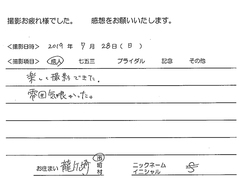 撮影お疲れ様でした。 感想をお願いいたします。
<撮影日時> 2019 年 7 月 28 日 ( 日 )
<撮影項目> 成人 七五三 ブライダル 記念 その他
楽しく撮影できた。
雰囲気良かった。
お住まい 龍ケ崎 市 町 村 ニックネーム イニシャル S